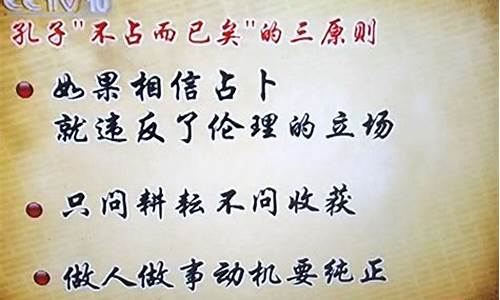 CCTV10
孔子"不占而已矣"的三原则
如果相信占卜
就违反了伦理的立场
只问耕耘不问收获
做人做事动机要纯正